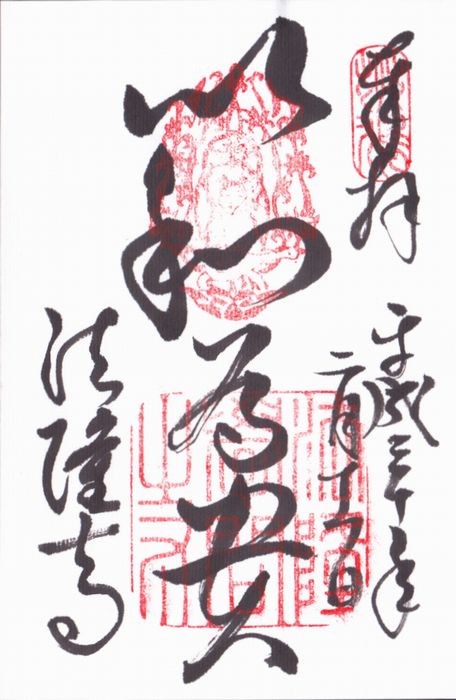 奉拝
平成三十年
二月十日
以和為貴
法隆寺